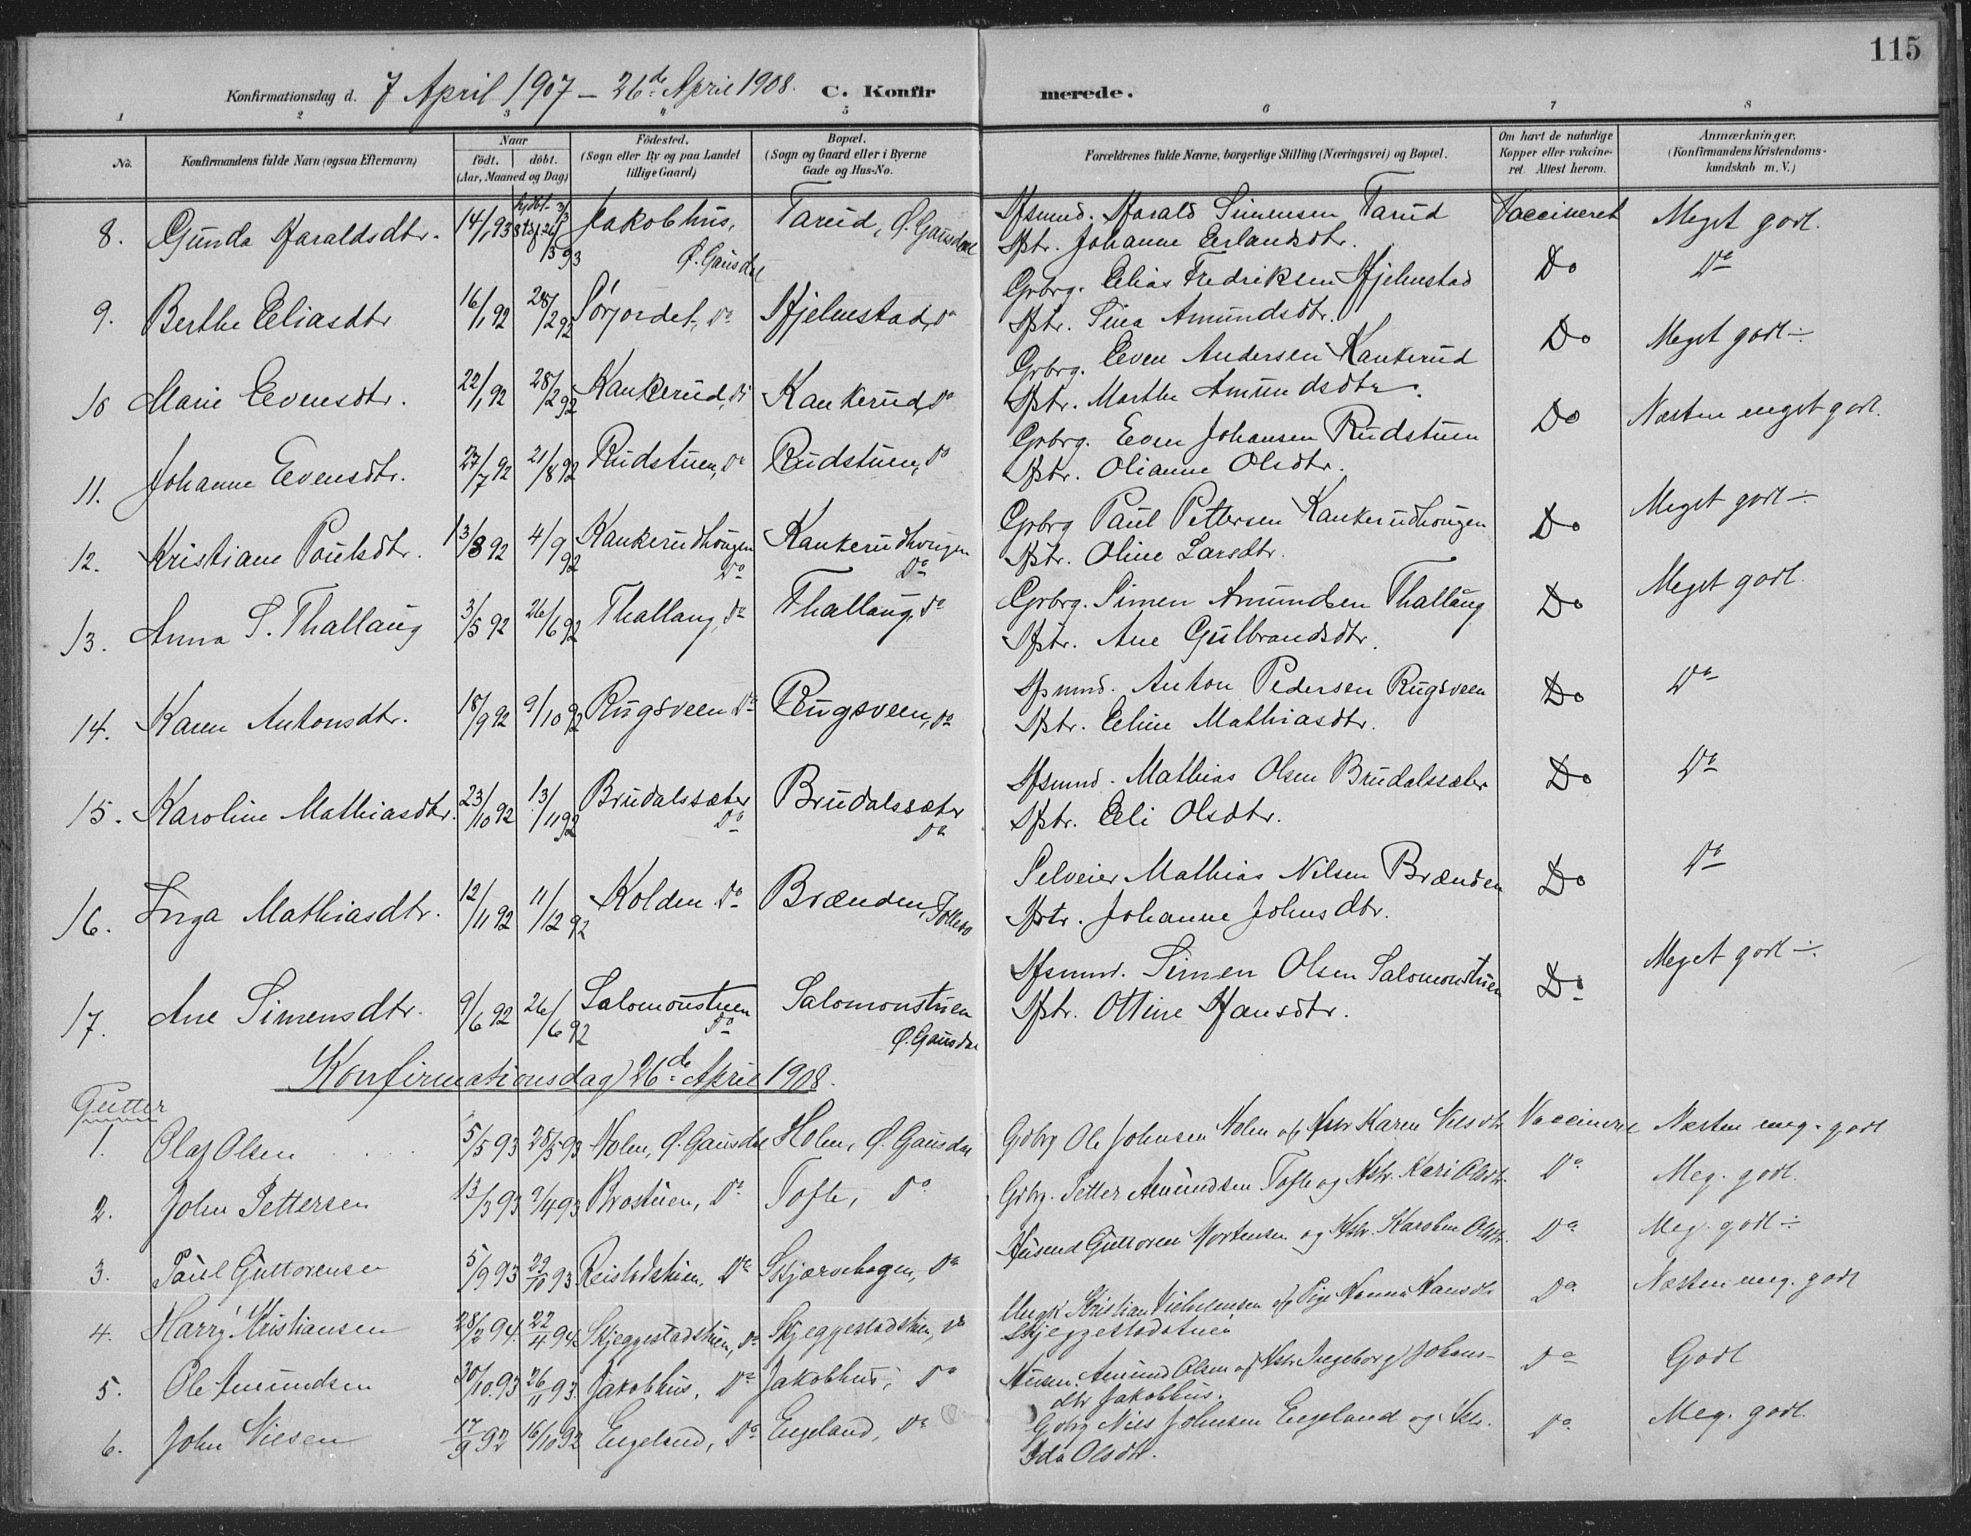 115
Konfirmationsdag d. 7 April 1907 – 26de April 1908. C. Konfirmerede.
1 2 3 4 5 6 7 8
No. Konfirmandens fulde Navn (ogsaa Efternavn) Naar födt. döbt. (Aar, Maaned og Dag) Födested. (Sogn eller By og paa Landet tillige Gaard) Bopæl. (Sogn og Gaard eller i Byerne Gade og Hus-No. Forældrenes fulde Navne, borgerlige Stilling (Næringsvei) og Bopæl. Om havt de naturlige Kopper eller vaccineret. Attest herom. Anmærkninger. (Konfirmandens Kristendomskundskab m. V.)
8. Gunda Haraldsdtr. 14/1 93 Jakobhus, Ø. Gausdal Tarud, Ø. Gausdal Hsmnd. Harald Simensen Tarud Vaccineret Meget godt.
Hstr. Johanne Erlandsdtr.
9. Berthe Eliasdtr 16/1 92 28/2 92 Sørjordet, Do Hjelmstad, Do Grbrg. Elias Fredriksen Hjelmstad Do Do
Hstr. Sina Amundsdtr.
10 Marie Evensdtr. 22/1 92 28/2 92 Kankerud, Do Kankerud, Do Grbrg. Even Andersen Kankerud Do Meget godt ÷
Hstr. Marthe Amundsdtr.
11. Johanne Evensdtr. 27/7 92 21/8 92 Rudstuen, Do Rudstuen, Do Grbrg. Even Johansen Rudstuen Do Næsten meget godt.
Hstr. Olianne Olsdtr.
12. Kristiane Paulsdtr. 13/8 92 4/9 92 Kankerudhougen Do Kankerudhougen Do Grbrg Paul Pettersen Kankerudhougen Do Meget godt ÷
Hstr. Oline Larsdtr.
13. Anna S. Thallaug 3/5 92 26/6 92 Thallaug, Do Thallaug, Do Grbrg. Simen Amundsen Thallaug Do Meget godt.
Hstr. Ane Gulbrandsdtr.
14. Karen Antonsdtr. 18/9 92 9/10 92 Rugsveen Do Rugsveen, Do Hsmnd. Anton Pedersen Rugsveen Do Do
Hstr. Eline Mathiasdtr.
15. Karoline Mathiasdtr. 23/10 92 13/11 92 Brudalssæter Do Brudalssæter Do Hsmnd. Mathias Olsen Brudalssæter Do Do
Hstr. Eli Olsdtr.
16. Inga Mathiasdtr. 12/11 92 11/12 92 Kolden Do Brænden, Follebo Selveier Mathias Nilsen Brænden Do Do
Hstr. Johanne Johnsdtr.
17. Ane Simensdtr. 9/6 92 26/6 92 Salomonstuen Do Salomonstuen Ø. Gausdal Hsmnd. Simen Olsen Salomonstuen Do Meget godt ÷.
Hstr. Ottine Hansdtr.
Konfirmationsdag 26de April 1908.
Gutter
1. Olaf Olsen 5/5 93 28/5 93 Holen, Ø. Gausdal Holen, Ø. Gausdal Gdbrg Ole Johnsen Holen og Hstr Karen Nilsdtr Næsten meg. godt
2. John Pettersen 13/3 93 9/4 93 Brostuen, Do Tofte, Do Gdbrg. Petter Amundsen Tofte og Hstr. Kari Olsdtr. Do Meg. godt.
3. Paul Guttormsen 5/9 93 22/10 93 Do Skjærvehagen, Do Husmd Guttorm Mortensen og Hstr. Karoline Olsdtr. Do Meg. godt ÷
4. Harry Kristiansen 28/2 94. 22/4 94 Skjeggestadstuen, Do Skjeggestadstuen, Do Ungk. Kristian Vilhelmsen og Pige Hanna Hansdtr Do Næsten meg. godt
Skjeggestadstuen
5. Ole Amundsen 30/10 93 26/11 93. Jakobhus, Do Jakobhus, Do Husm. Amund Olsen og Hstr Ingeborg Johans- Do Godt
dtr Jakobhus.
6. John Nilsen 17/9 92 16/10 92 Engeland, Do Engeland, Do Gdbrg Nils Johnsen Engeland og Hstr. Do Meg. godt.
Ida Olsdtr.